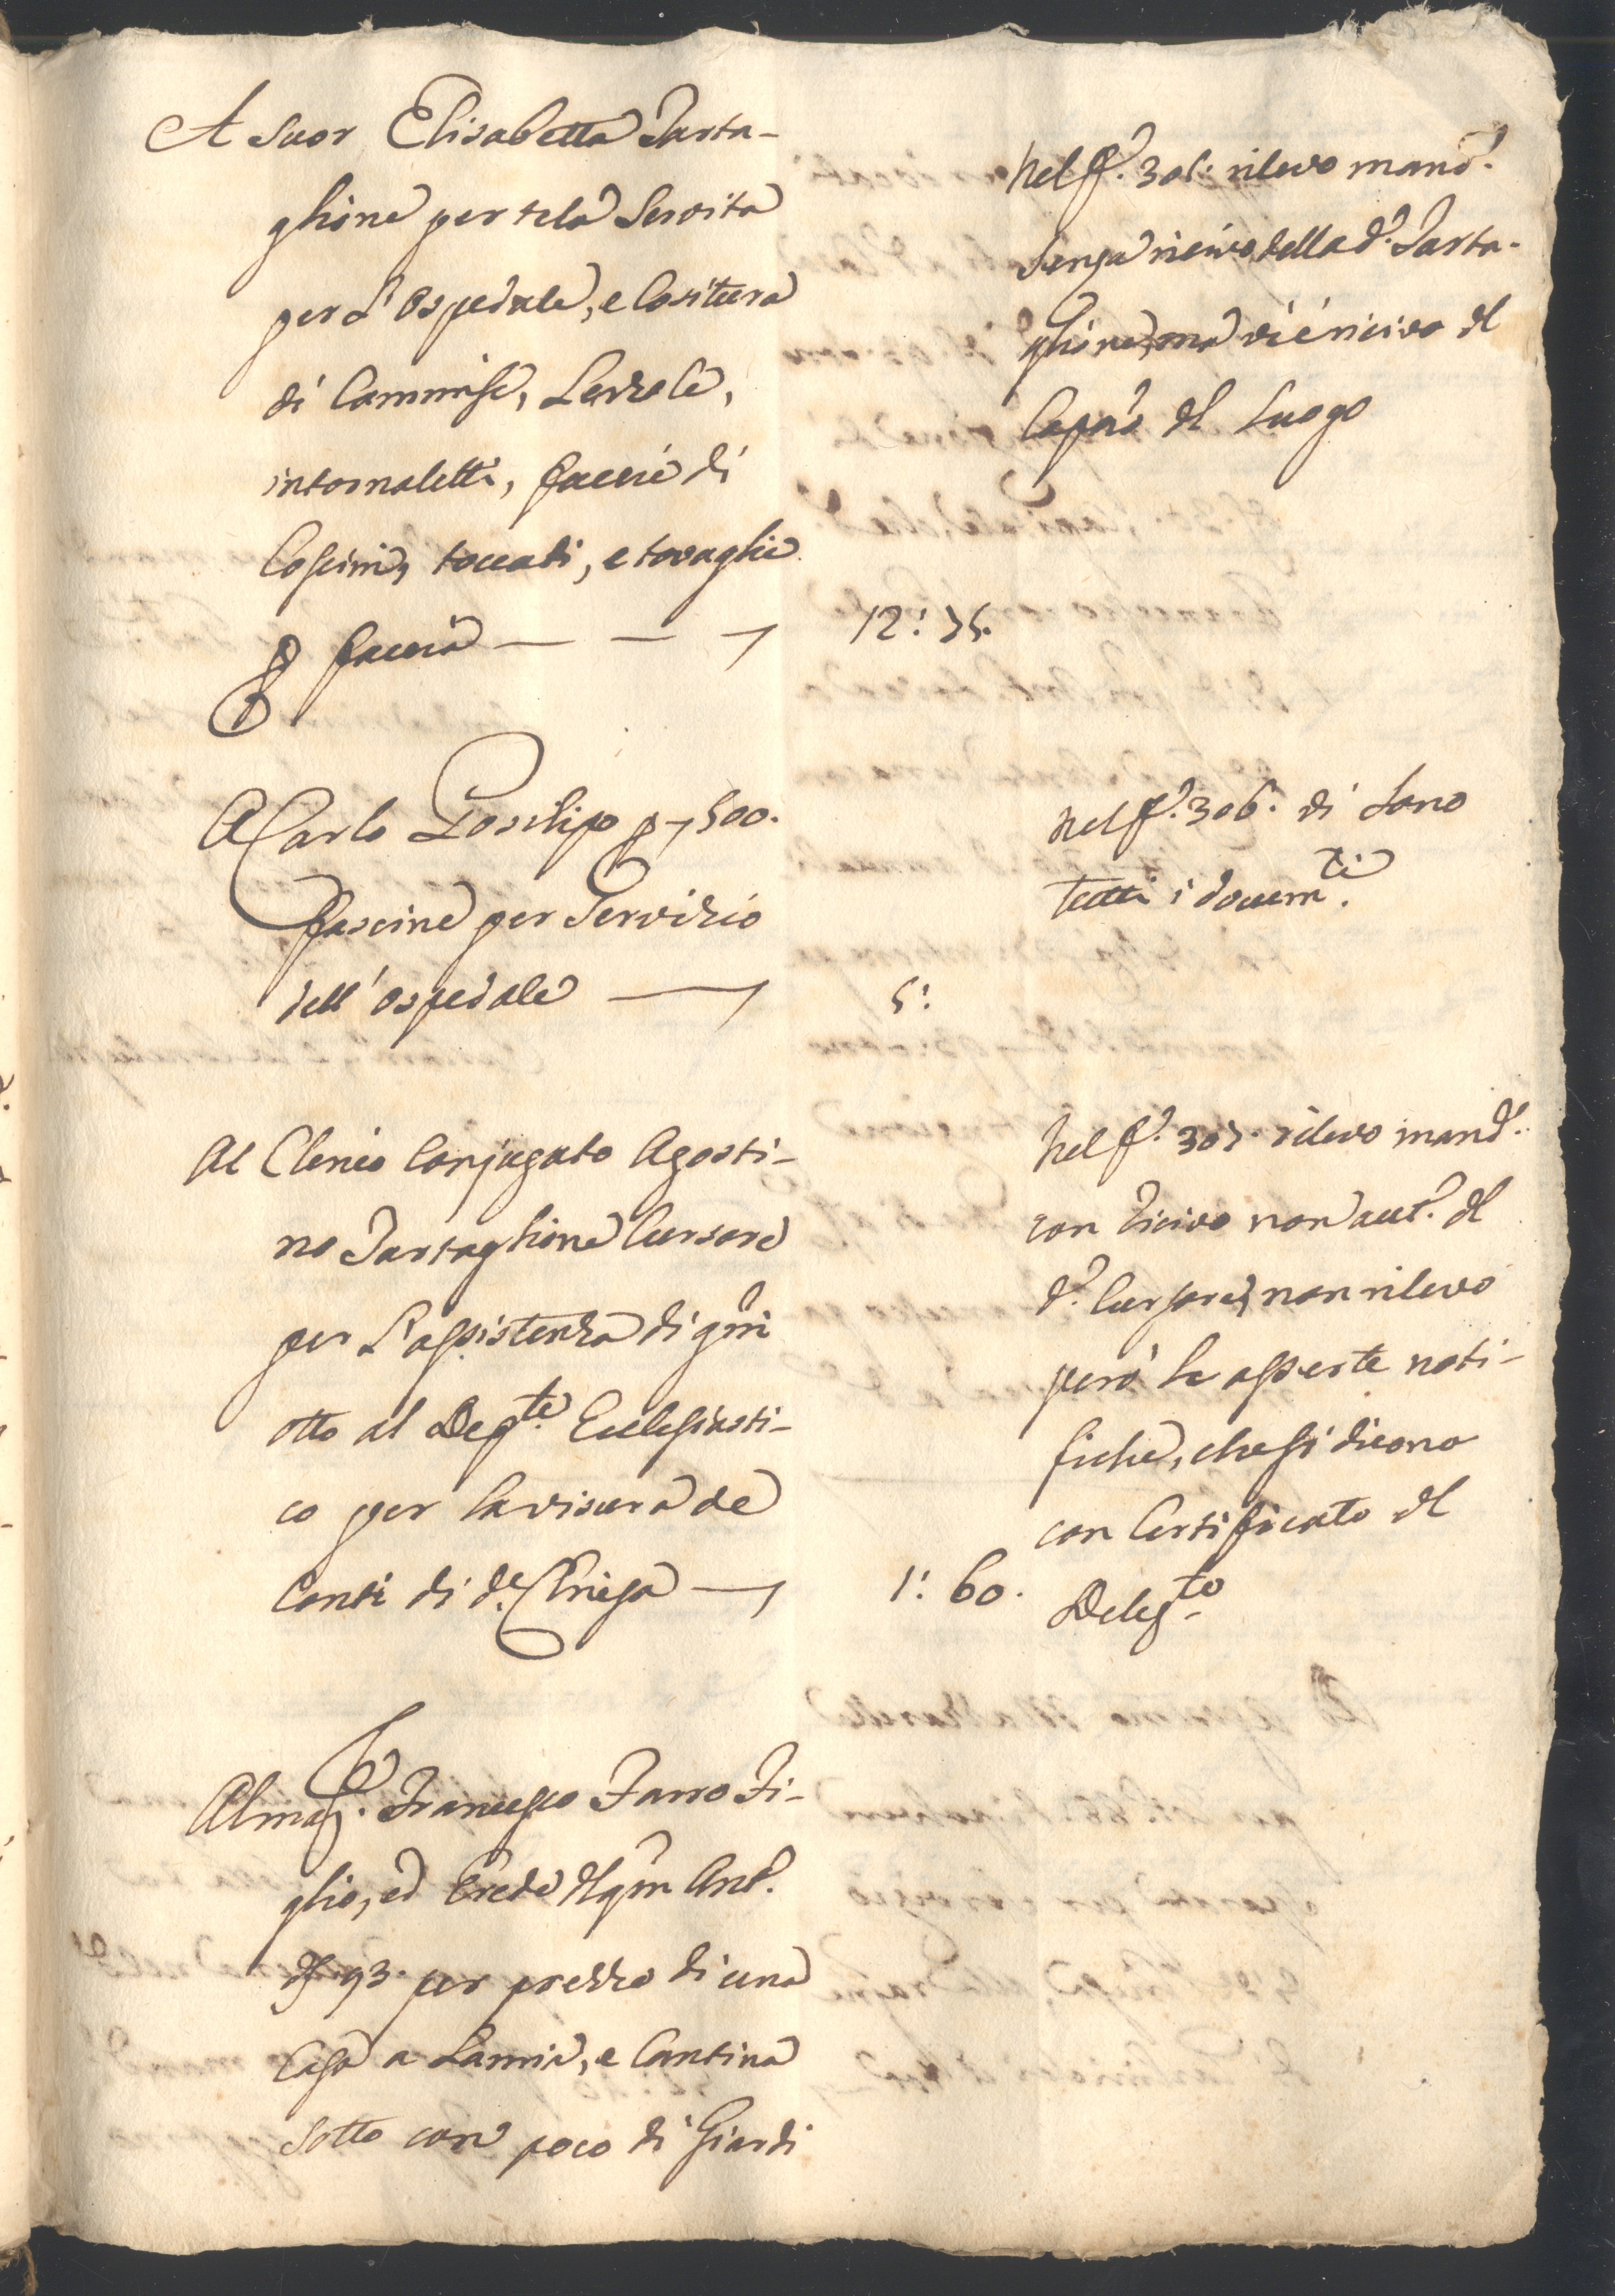 A Suor Elisabetta Tarta-
glione per tela servita
per l'Ospedale, e Cositura
di Cammise, Lenzola,
intornaletti, faccie di
Coscini, toccati, e tovaglie
faccia — — 12: 75.
Nel f.º 305. rilevo mand.º
senza ricivo della d.ª Tarta-
glione, ma vi è ricivo del
del Luogo
A Carlo Posilipo p 500.
fascine per servizio
dell'ospedale — 5:
Nel f.º 306. vi sono
tutti i docum.ti
Al Clerico Conjugato Agosti-
no Tartaglione Cursore
per l'assistenza di g.ni
otto al Deg.to Ecclesiasti-
co per la visura de
Conti di d.ª Chiesa — 1: 60.
Nel f.º 307. rilevo mand.º
con ricivo non aut.º del
d.º Cursore, non rilevo
però le asserte noti-
fiche, che si dicono
con Certificato del
Deleg.to
Al mag.º Francesco Farro Fi-
glio, ed Erede del qm Ant.º
93. per prezzo di una
Casa a Lamia, e Cantina
sotto con poco di Giardi